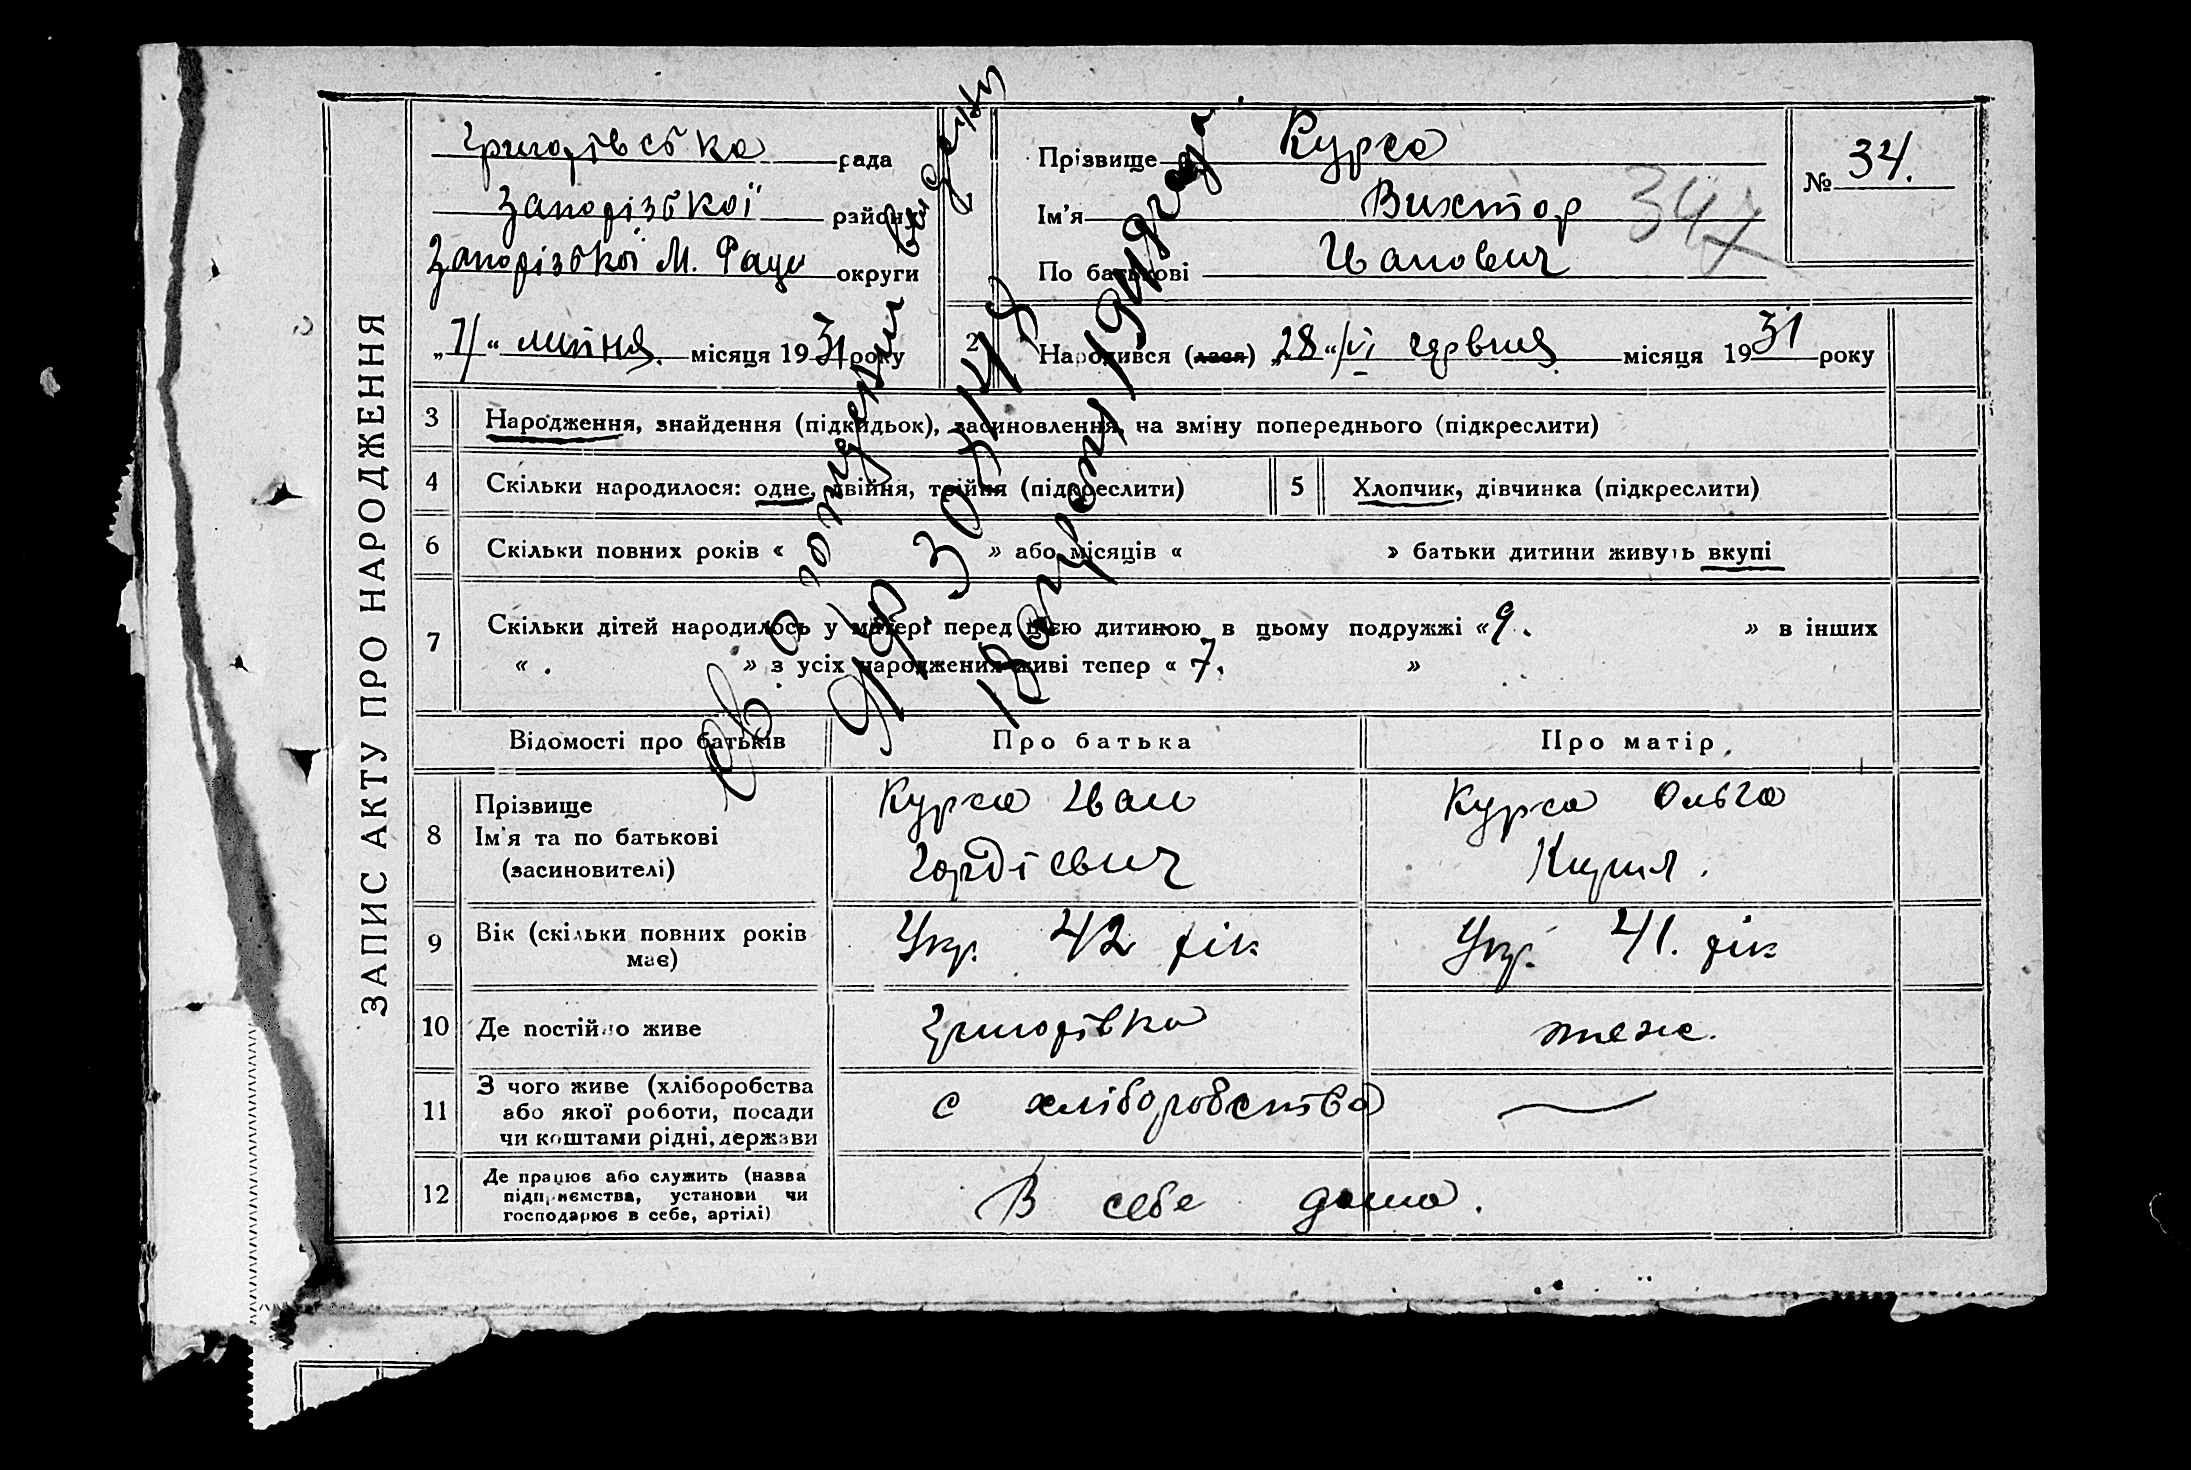 ЗАПИС АКТУ ПРО НАРОДЖЕННЯ
Григорівська рада
Запорізької район
Запорізької М. Ради округи
„7/“ липня місяця 1931 року
1
Прізвище Курса
Ім'я Виктор 34
По батькові Иванович
№ 34.
2 Народився (лася) „28“/VI червня місяця 1931 року
3 Народження, знайдення (підкидьок), засиновлення, на зміну попереднього (підкреслити)
4 Скільки народилося: одне, двійня, трійня (підкреслити)
5 Хлопчик, дівчинка (підкреслити)
6 Скільки повних років « » або місяців « » батьки дитини живуть вкупі
7 Скільки дітей народилось у матері перед цією дитиною в цьому подружжі «9. » в інших
« . » з усіх народжених живі тепер « 7. »
Св. о рождении выдано
18 апреля
Відомості про батьків Про батька Про матір
8 Прізвище
Ім'я та по батькові
(засиновителі)
Курса Иван
Гордієвич
Курса Ольга
Кирил.
9 Вік (скільки повних років
має)
Укр. 42 рік
Укр. 41. рік
10 Де постійно живе
Григорівка
теж.
11 З чого живе (хліборобства
або якої роботи, посади
чи коштами рідні, держави
с хліборобства
12 Де працює або служить (назва
підприємства, установи чи
господарює в себе, артілі)
В себе дома.